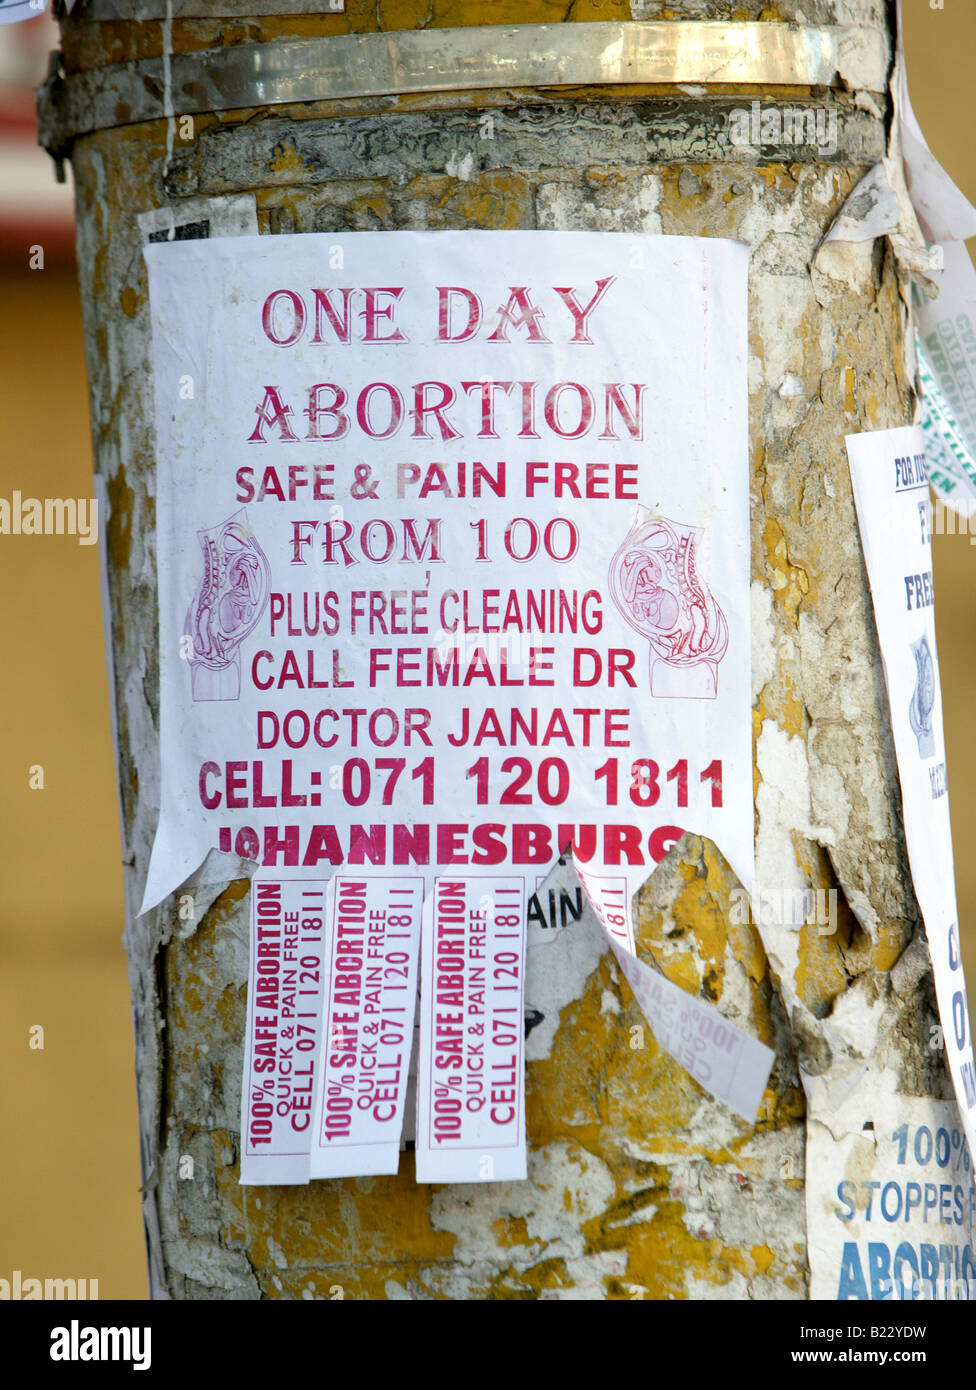 ONE DAY
ABORTION
SAFE & PAIN FREE
FROM 100
PLUS FREE CLEANING
CALL FEMALE DR
DOCTOR JANATE
CELL: 071 120 1811
JOHANNESBURG
100% SAFE ABORTION
QUICK & PAIN FREE
CELL 071 120 1811
100% SAFE ABORTION
QUICK & PAIN FREE
CELL 071 120 1811
100% SAFE ABORTION
QUICK & PAIN FREE
CELL 071 120 1811
AIN
1811
FOR
FREE
100%
STOPPES
ABORTIO
alamy
Image ID: B22YDW
www.alamy.com